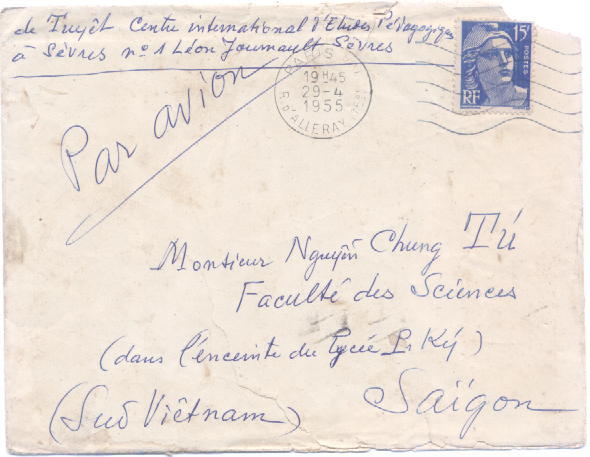 de Tuyêt Centre international d'Etudes Pédagogiques
à Sèvres nº 1 Léon Journault Sèvres
15F
POSTES
RF
PARIS
19H45
29-4
1955
R. D'ALLERAY
Par avion
Monsieur Nguyễn Chung Tú
Faculté des Sciences
(dans l'enceinte du lycée P. Ký)
Saïgon
(Sud Viêtnam)